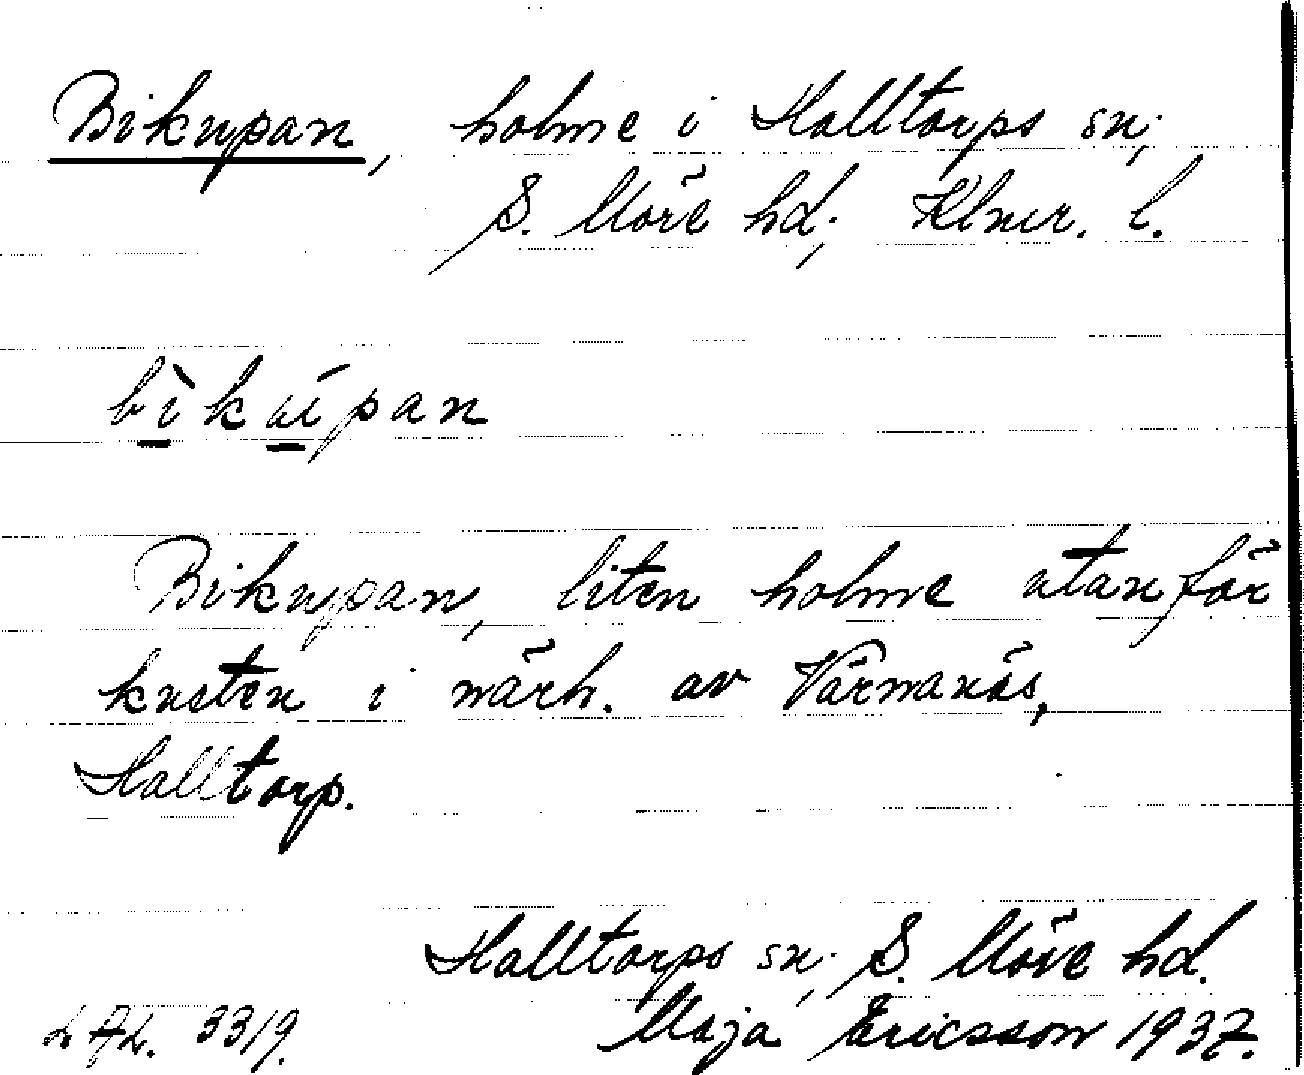 Bikupan, holme i Halltorps sn,
S. Möre hd, Klmr. l.
bìkúpan
Bikupan, liten holme utanför
kusten i närh. av Värnanäs,
Halltorp.
Halltorps sn, S. Möre hd.
LAL. 3319. Maja Ericsson 1937.